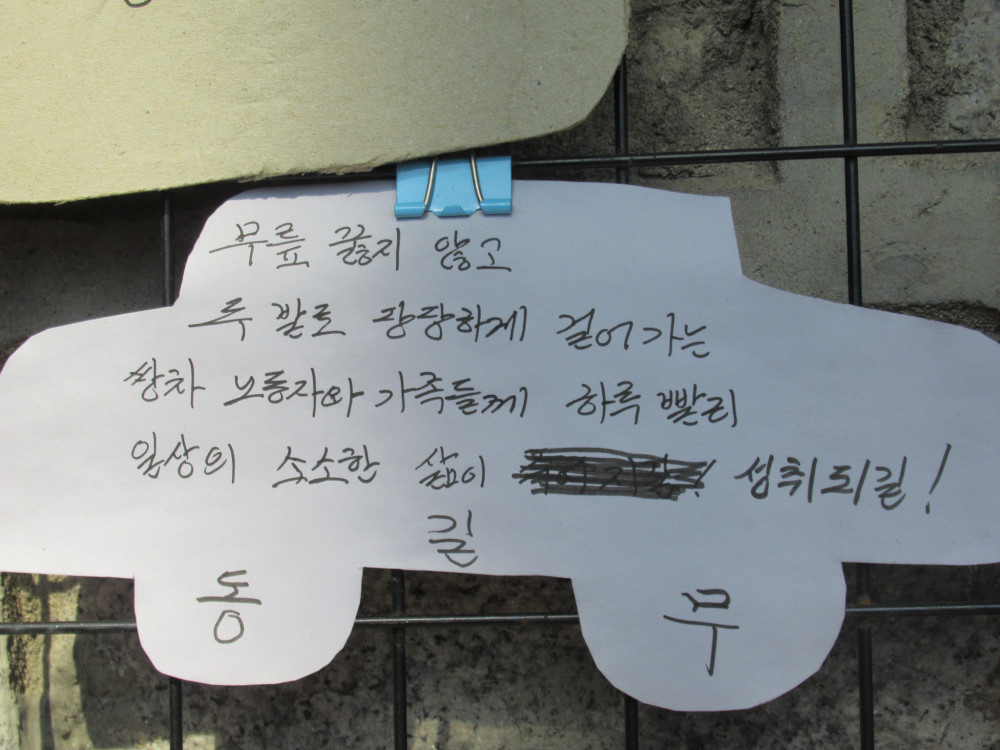 무릎 꿇지 않고
두 발로 당당하게 걸어가는
쌍차 노동자와 가족들께 하루 빨리
일상의 소소한 삶이 성취되길!
길
동 무